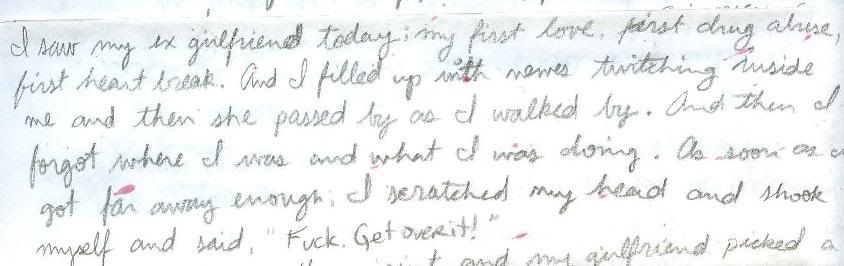 I saw my ex girlfriend today; my first love, first drug abuse,
first heart break. And I filled up with nerves twitching inside
me and then she passed by as I walked by. And then I
forgot where I was and what I was doing. As soon as
got far away enough; I scratched my head and shook
myself and said, "Fuck. Get over it!"
and my girlfriend picked a